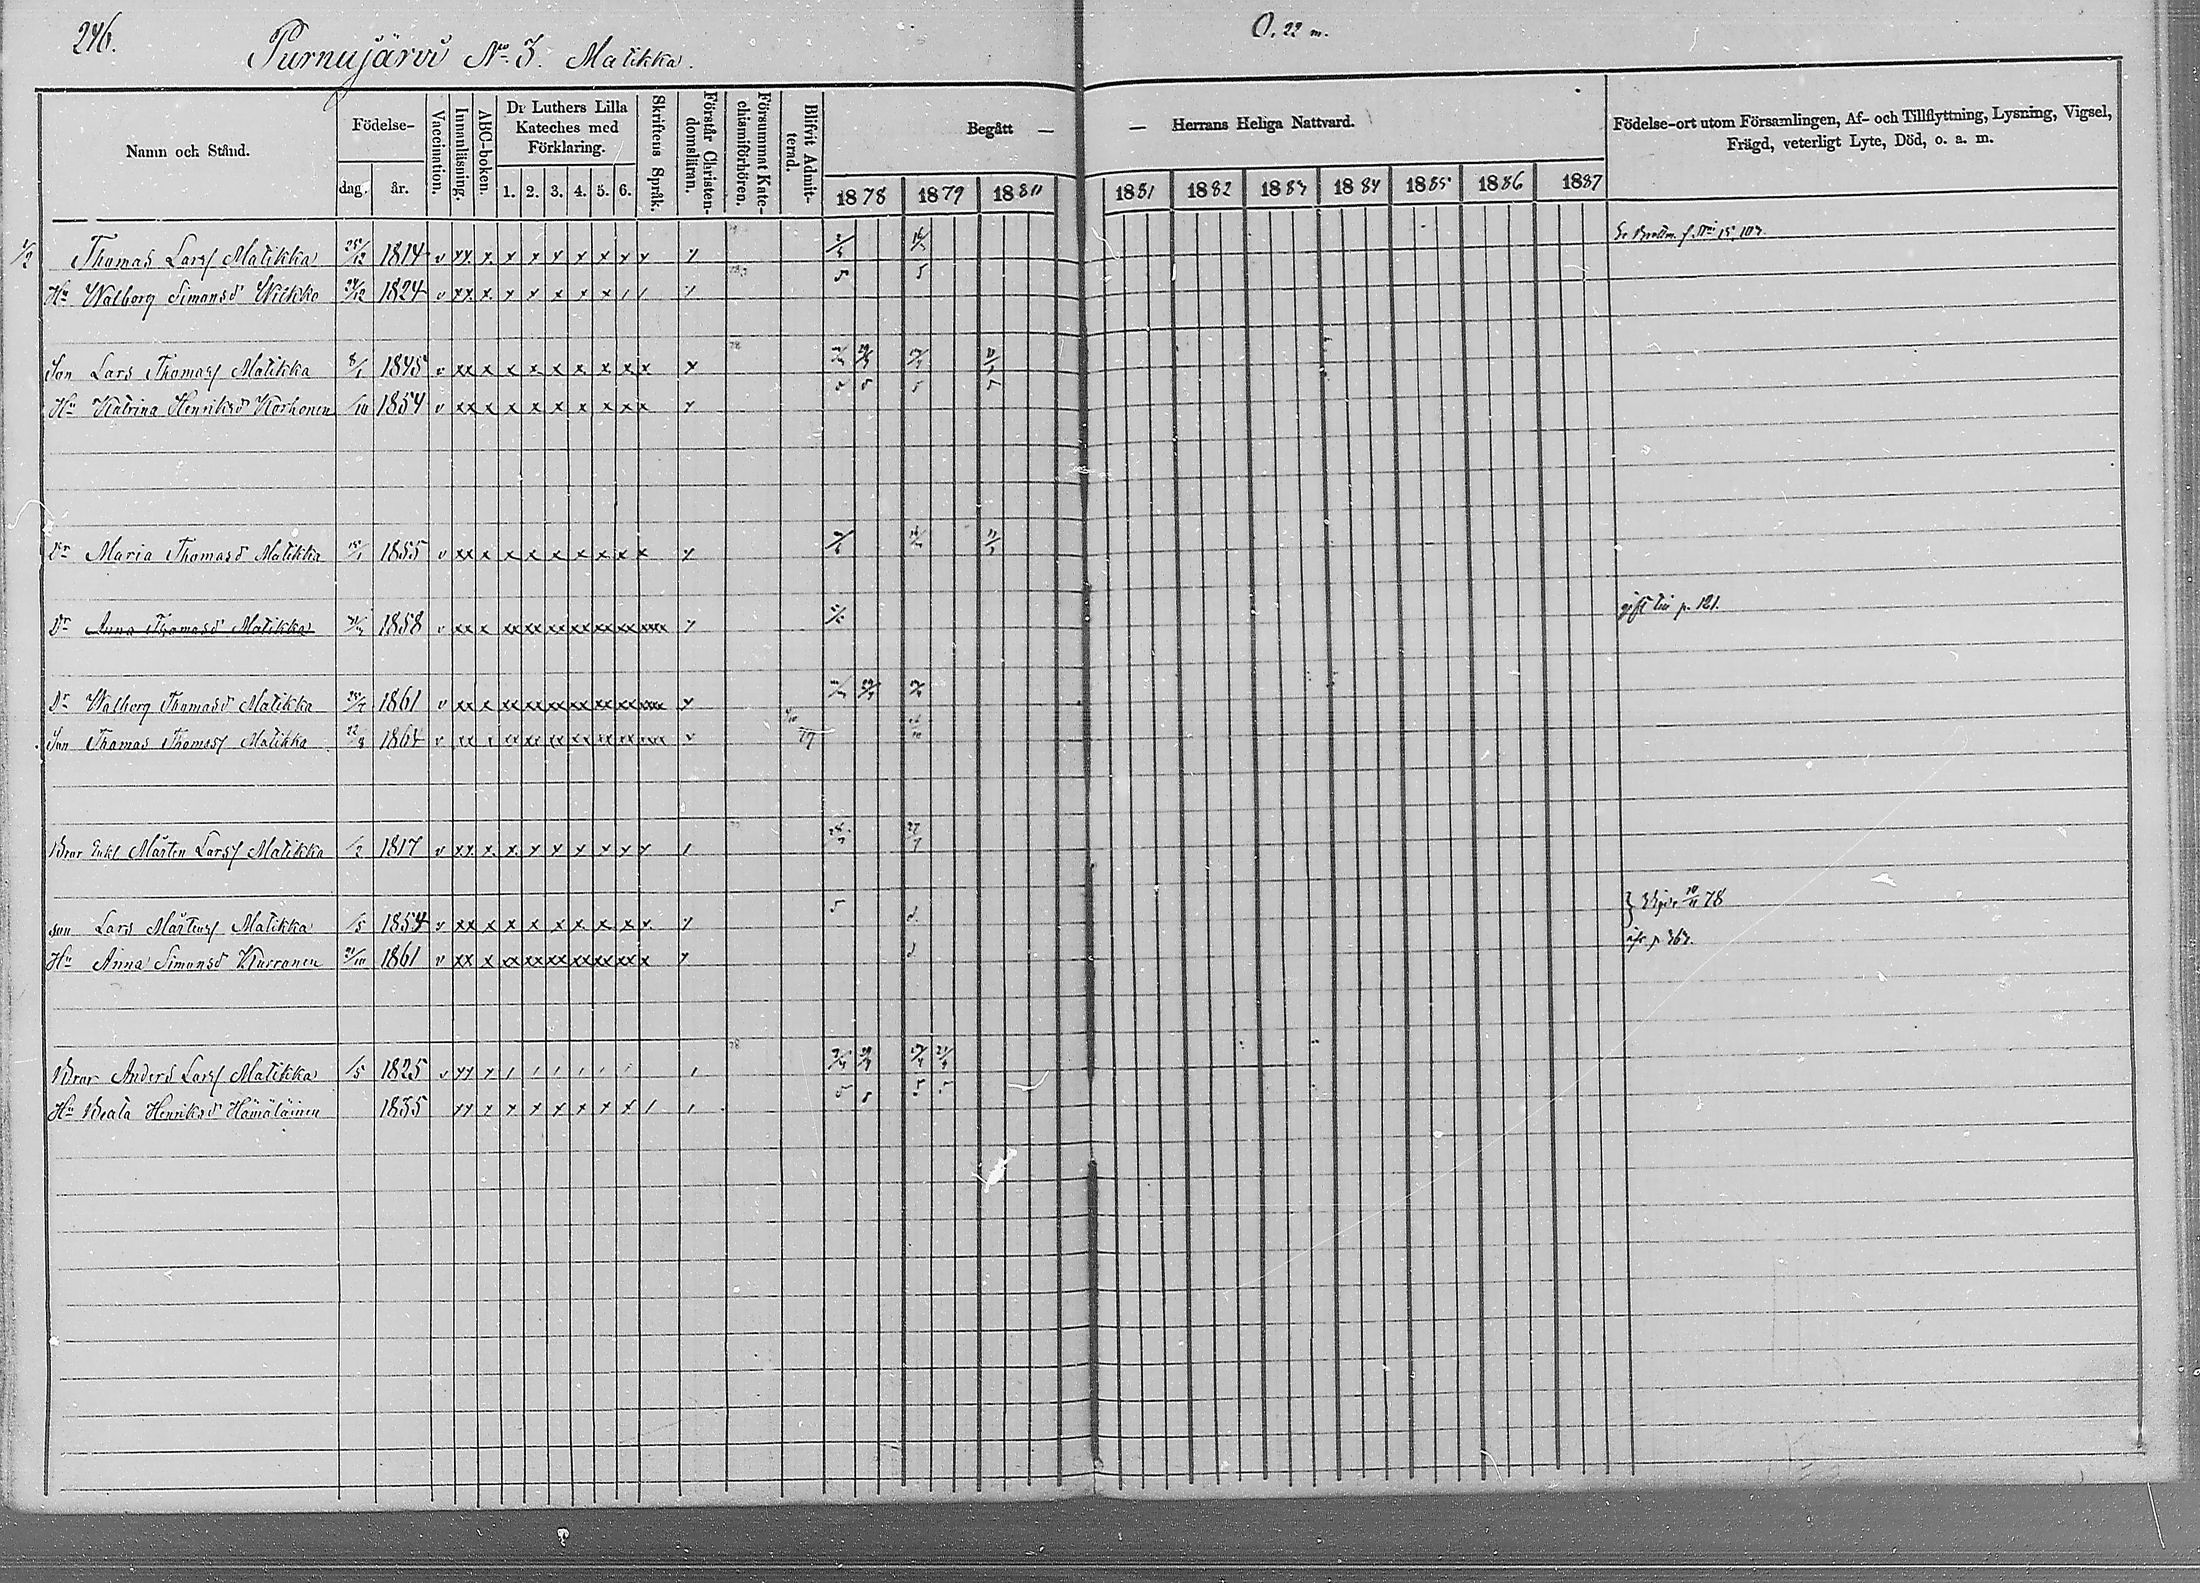 246.
Purnujärvi No 3. Matikka.
O. 22 m.
Namn och Stånd.
Födelse-
dag. år.
Vaccination.
Innanläsning.
ABC-boken.
Dr Luthers Lilla Kateches med Förklaring.
1. 2. 3. 4. 5. 6.
Skriftens Språk.
Förstår Christendomsläran.
Försummat Katechismiförhören.
Blifvit Admitterad.
Begått — — Herrans Heliga Nattvard.
1878 1879 1880 1881 1882 1883 1884 1885 1886 1887
Födelse-ort utom Församlingen, Af- och Tillflyttning, Lysning, Vigsel,
Frägd, veterligt Lyte, Död, o. a. m.
1/2 Thomas Larsf Matikka 25/12 1814 v xx x x x x x x x x x
Hu Walborg Simonsd Wilkko 24/12 1824 v xx x x x x x x
Son Lars Thomasf Matikka 8/1 1845 v xx x x x x x x x x x
Hu Katrina Henriksd Korhonen /10 1854 v xx x x x x x x x x x
Dr Maria Thomasd Matikka 15/1 1855 v xx x x x x x x x x x
Dr Anna Thomasd Matikka 1858 v xx x xx xx xx xx xx xx
gift till p. 121.
Dr Walborg Thomasd Matikka 25/7 1861 v xx x xx xx xx xx xx xx
Son Thomas Thomasf Matikka 22/8 1864 v xx x xx xx xx xx xx xx
Bror Enkl Mårten Larsf Matikka /2 1817 v xx x x x x x x x x
son Lars Mårtensf Matikka /5 1854 v xx x x x x x x x x
78
Hu Anna Simonsd Kurronen /10 1861 v xx x xx xx xx xx xx xx x
Bror Anders Larsf Matikka /5 1825 v xx x
Hu Beata Henriksd Hämäläinen 1835 xx x x x x x x x